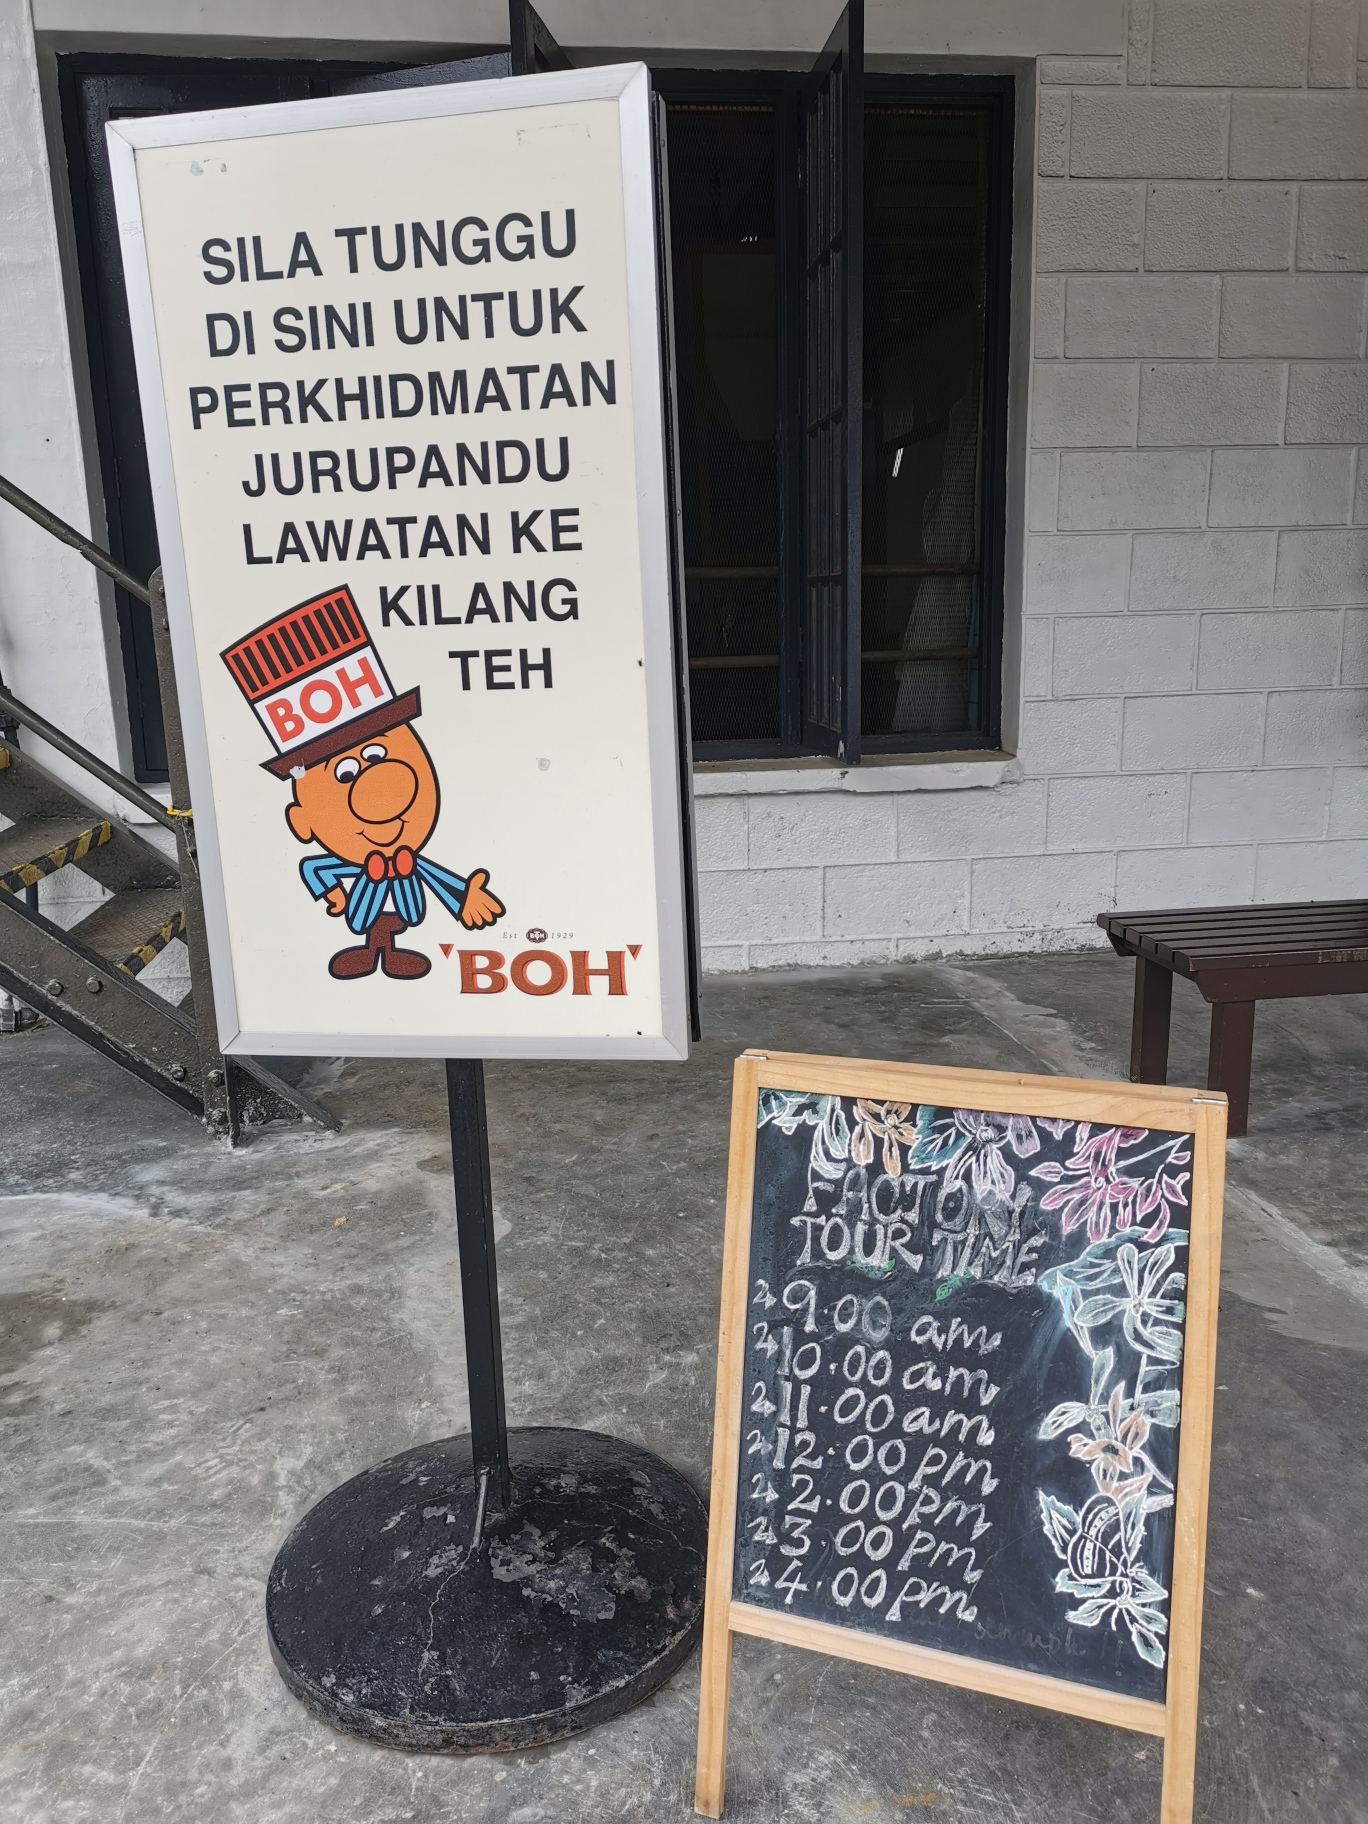 SILA TUNGGU
DI SINI UNTUK
PERKHIDMATAN
JURUPANDU
LAWATAN KE
KILANG
TEH
BOH
Est BOH 1929
'BOH'
FACTORY
TOUR TIME
9.00 am
10.00 am
11.00 am
12.00 pm
2.00 pm
3.00 pm
4.00 pm